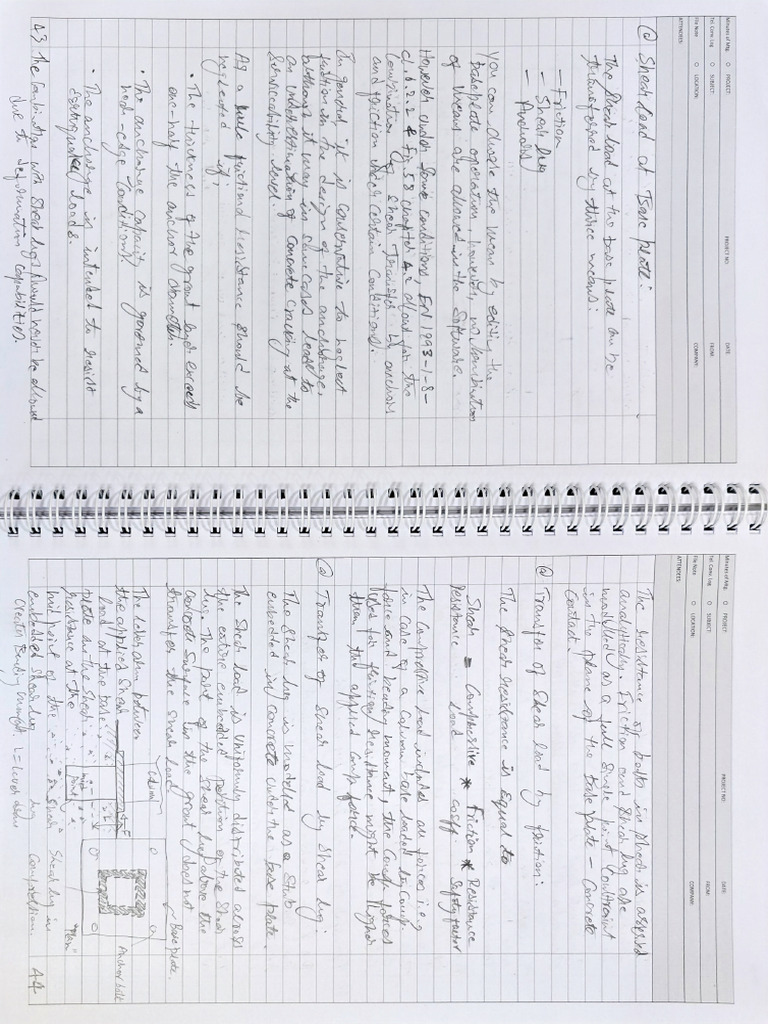 Minutes of Mtg. O PROJECT: PROJECT NO: DATE:
Tel. Conv. Log O SUBJECT: FROM:
File Note O LOCATION: COMPANY:
ATTENDEES:
@ Shear Load at Base plate:
The Shear load at the base plate can be
transferred by three means:
— Friction
— Shear lug
— Anchors
You can choose the mean by editing the
baseplate operation, however, no combination
of means are allowed in the Software.
However under some conditions, EN 1993-1-8-
cl. 6.2.2 & Fig 58 chapter 4.2 allows for the
Combination of shear transfer by anchors
and friction under certain conditions).
In general it is conservative to neglect
friction in the design of the anchorage,
although it may in some cases lead to
an underestimation of concrete cracking at the
Serviceability level.
As a rule frictional resistance should be
neglected if;
• The thickness of the grout layer exceeds
one-half the anchor diameter.
• The anchorage capacity is governed by a
near-edge condition.
• The anchorage is intended to resist
earthquake loads.
A3 The Combination with shear lug should never be allowed
due to deformation capabilities.
Minutes of Mtg. O PROJECT: PROJECT NO: DATE:
Tel. Conv. Log O SUBJECT: FROM:
File Note O LOCATION: COMPANY:
ATTENDEES:
The resistance of bolts in shear is assessed
analytically. Friction and Shear lug are
modelled as a full single point Constraint
in the plane of the base plate - concrete
Contact.
@ Transfer of Shear load by friction:
The shear resistance is equal to
Shear = Compressive * Friction * Resistance
resistance load coeff. Safety factor
The Compressive load includes all forces i.e;
in case of a Column base loaded by Comp.
force and bending moment, the Comp. forces
used for friction resistance might be higher
than the applied Comp. force.
@ Transfer of shear load by Shear lug:
The Shear lug is modelled as a stub
embedded in concrete under the base plate.
The Shear load is Uniformly distributed across
the entire embedded portion of the shear
lug. The part of the shear lug above the
concrete surface in the grout does not
transfer the shear load
The lever arm between
the applied shear
load at the base
plate and the shear
resistance at the
mid point of the
embedded shear lug
Greater Bending moment, L = Lever arm
Column
mid
point
Base plate.
Anchor bolt
"Plan"
Shear lug in
Compression.
A4